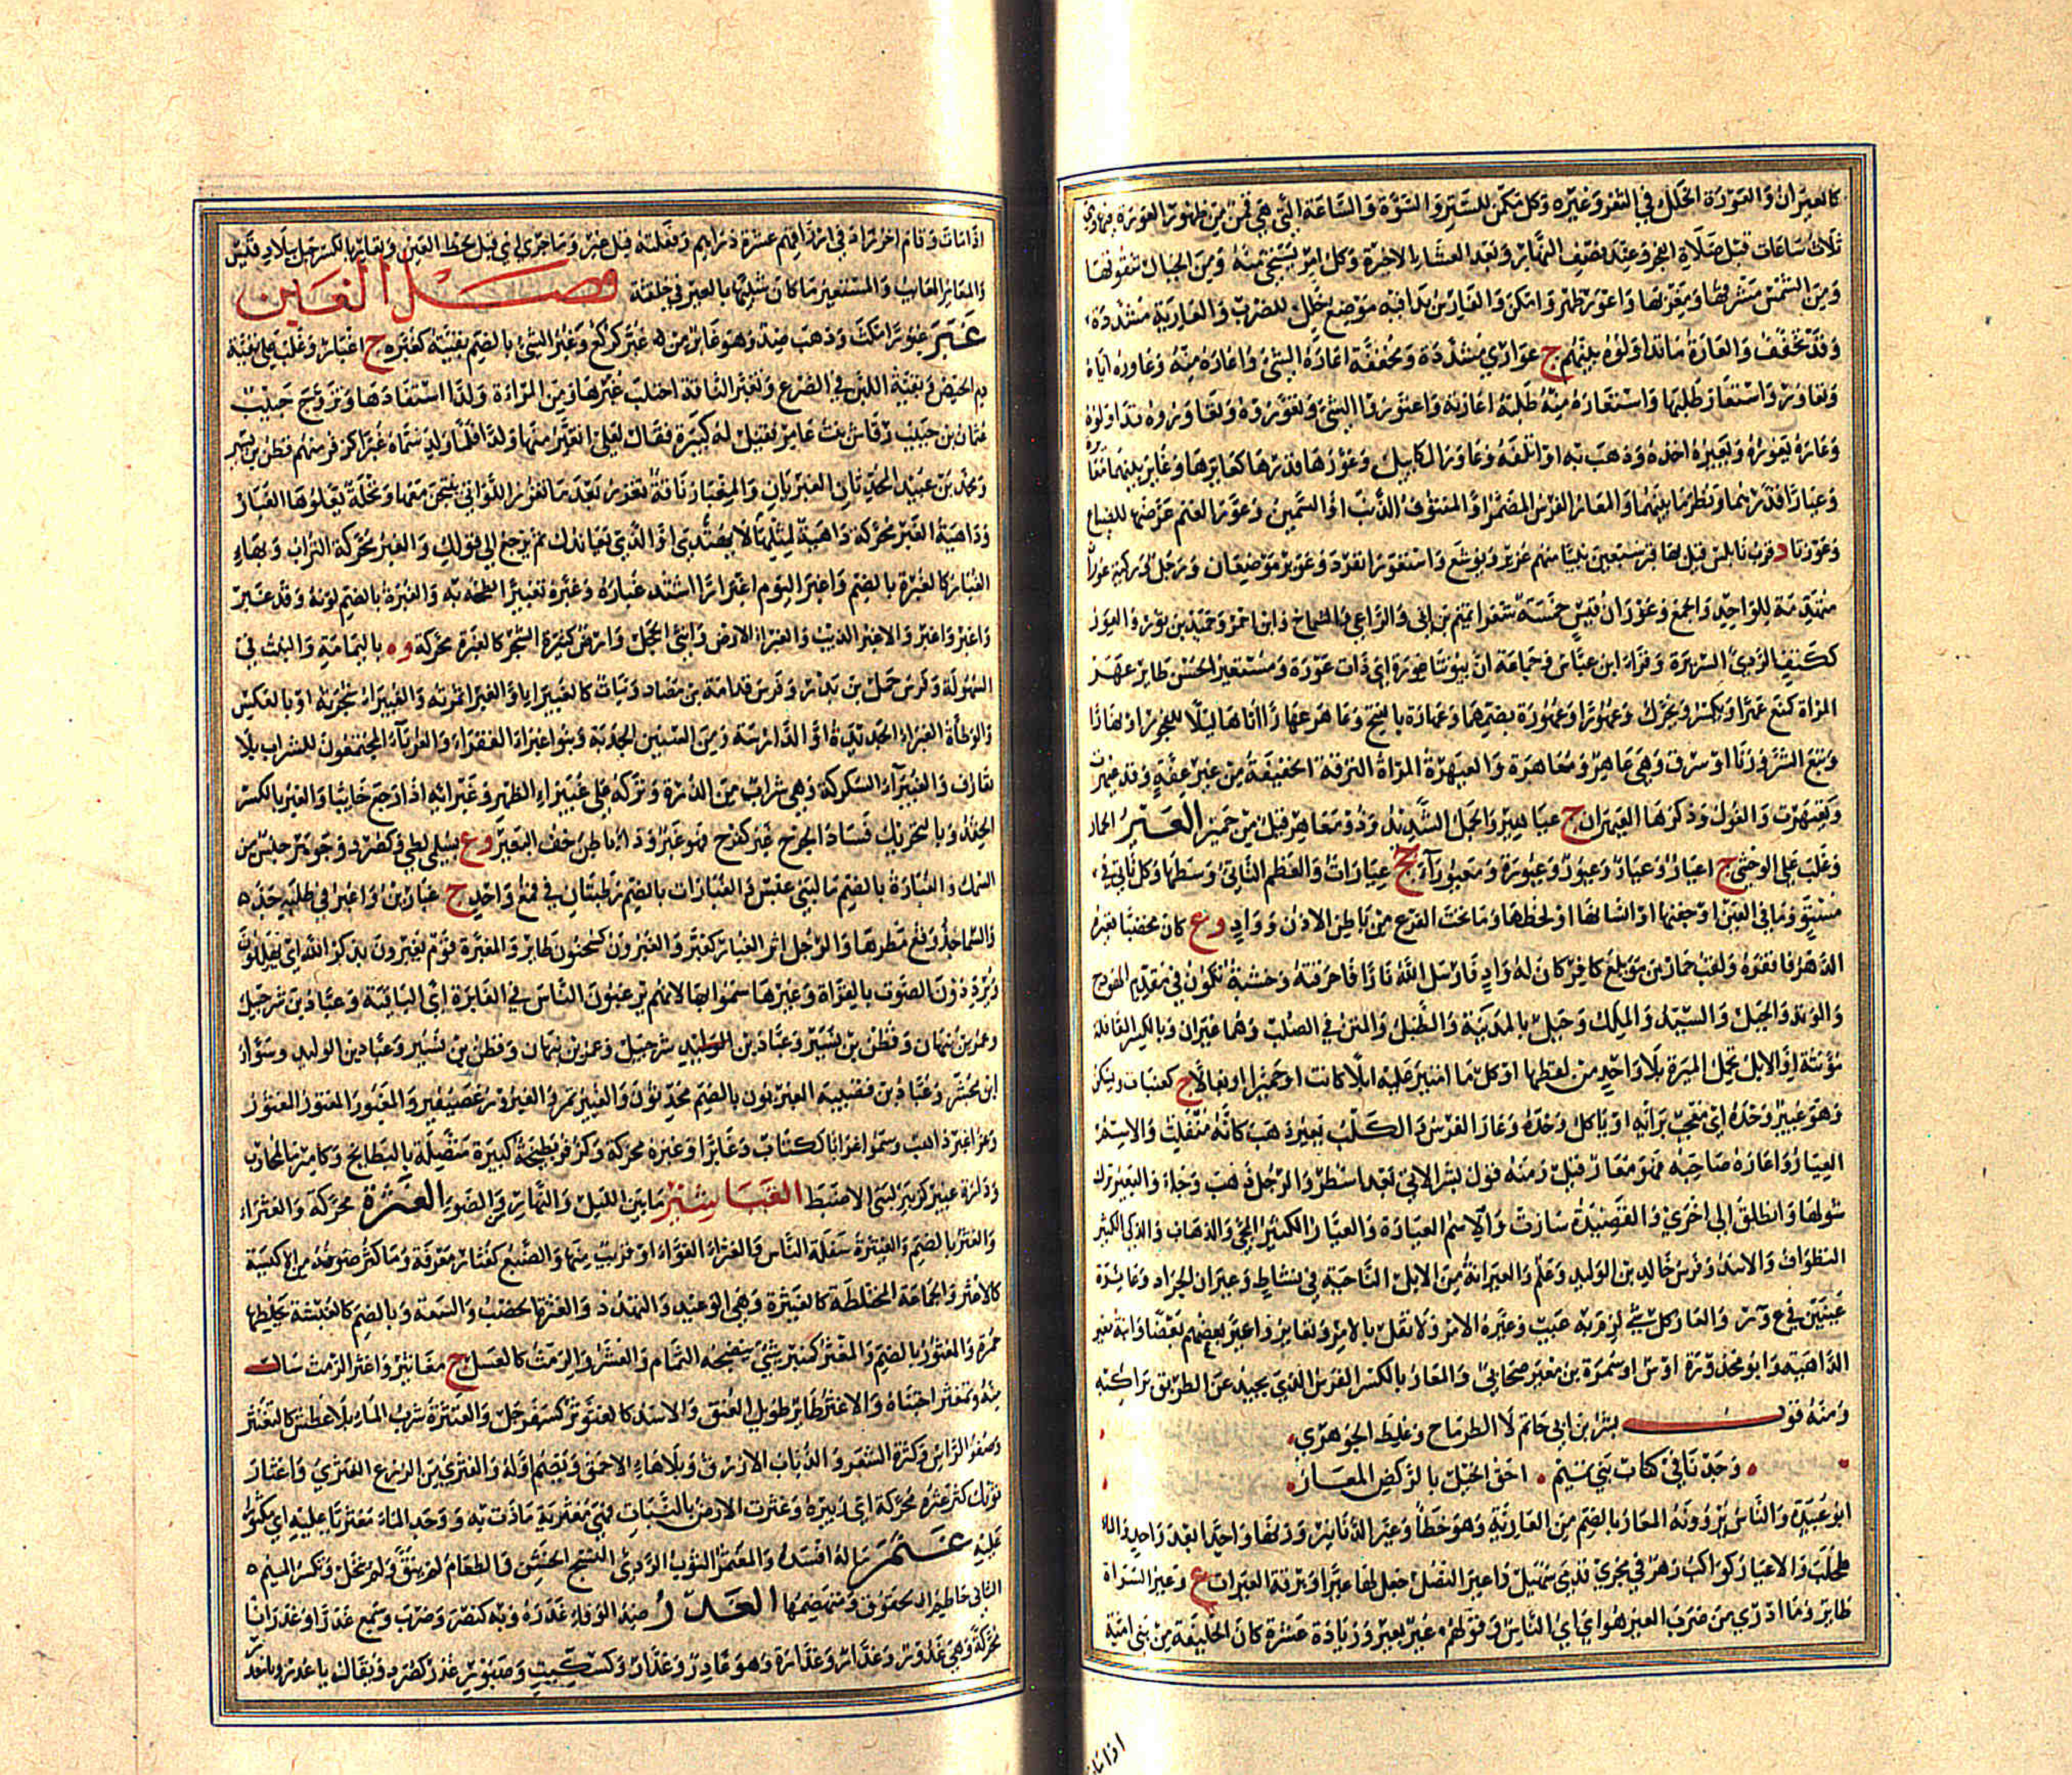 كالعيران والعورة الخلل في الثغر وغيره وكل مكمن للستر والسوأة والساعة التي هي قمن من ظهور العورة فيها وهي
ثلاث ساعات قبل صلاة الفجر وعند نصف النهار وبعد العشاء الاخرة وكل امر يستحيى منه ومن الجبال شقوقها
ومن الشمس مشرقها ومغربها واعور ظهر وامكن والفارس بدا فيه موضع خلل للضرب والعارية مشددة
وقد تخفف والعارة ما تداولوه بينهم ج عواري مشددة ومخففة اعاره الشئ واعاره منه وعاوره اياه
وتعاور واستعار طلبها واستعاره منه طلب اعارته واعتوروا الشئ وتعوروه وتعاوروه تداولوه
وعاره يعوره ويعيره اخذه وذهب به او اتلفه وعاور المكاييل وعورها قدرها كعايرها وعاير بينهما معايرة
وعيارا قدرهما ونظر ما بينهما والمعار الفرس المضمر او المنتوف الذنب او السمين وعور الغنم عرضها للضياع
وعورتا د قرب نابلس قيل بها قبر سبعين نبيا منهم عزير ويوشع واستعور انفرد وعوير موضعان
متقدمة للواحد والجمع وعوران قيس خمسة شعراء تميم بن ابي والراعي والشماخ وابن احمر وحميد بن ثور والعور
ككتف الردئ السريرة وقراءة ابن عباس وجماعة ان بيوتنا عورة اي ذات عورة ومستعير الحسن طائر عهر
المراة كمنع عهرا ويكسر ويحرك وعهورا وعهورة بضمهما وعهارة بالفتح وعاهر عهارا اتاها ليلا للفجور او نهارا
وتبع الشر وزنا او سرق وهي عاهر ومعاهرة والعيهرة المراة النزقة الخفيفة من غير عفة وقد عيهرت
وتعيهرت والغول وذكرها العيهران ج عياهير والجمل الشديد وذو معاهر قيل من حمير العير الحمار
وغلب على الوحشي ج اعيار وعيار وعيور وعيورة ومعيوراء جج عيارات والعظم الناتئ وسطها وكل ناتئ في
مستو وماقي العين او جفنها او انسانها او لحظها وما تحت الفرع من باطن الاذن وواد وع كان مخصبا فغيره
الدهر فاقفره ولقب حمار بن مويلع كافر كان له واد فارسل الله نارا فاحرقته وخشبة تكون في مقدم الهودج
والوتد والجبل والسيد والملك وجبل بالمدينة والطبل والمتن في الصلب وهما عيران وبالكسر القافلة
مؤنثة او الابل تحمل الميرة بلا واحد من لفظها او كل ما امتير عليه ابلا كانت او حميرا او بغالا ج كعنبات ويسكن
وهو عيير وحده اي معجب برايه او ياكل وحده وعار الفرس والكلب يعير ذهب كانه منفلت والاسم
العيار واعاره صاحبه فهو معار قيل ومنه قول بشر الاتي بعد اسطر والرجل ذهب وجاء والبعير ترك
شولها وانطلق الى اخرى والقصيدة سارت والاسم العيارة والعيار الكثير المجئ والذهاب والذكي الكثير
التطواف والاسد وفرس خالد بن الوليد وعلم والعيرانة من الابل الناجية في نشاط وعيران الجراد وعائرة
عينين في ع و ر والعار كل شئ لزم به عيب وعيره الامر ولا تقل بالامر وتعاير
الداهية وابو محذورة اوس او سمرة بن معير صحابي والمعار بالكسر الفرس الذي يحيد عن الطريق براكبه
ومنه قول بشر بن ابي خاتم لا الطرماح وغلط الجوهري
وجدنا في كتاب بني تميم احق الخيل بالركض المعار
ابو عبيدة والناس يروونه المعار بالضم من العارية وهو خطأ وعير الدنانير وزنها واحدا بعد واحد والماء
طحلب والاعيار كواكب زهر في مجرى قدمي سهيل واعير النصل جعل لها عيرا وبرقة العيرات ع وعير السراة
طائر وما ادري من ضرب العير هو اي اي الناس وقولهم عير بعير وزيادة عشرة كان الخليفة من بني امية
اذا مات
اذا مات وقام اخر زاد في ارزاقهم عشرة دراهم وفعلته قبل عير وما جرى اي قبل لحظ العين
والمعاير المعايب والمستعير ما كان شبيها بالعير في خلقته فصل الغين
غبر غبورا مكث وذهب ضد وهو غابر من غبر كركع وغبر الشئ بالضم بقيته كغبره ج اغبار وغلب على بقية
دم الحيض وبقية اللبن في الضرع وتغبر الناقة احتلب غبرها ومن المراة ولدا استفادها وتزوج
عثمان بن حبيب رقاش بنت عامر فقيل له كبيرة فقال لعلي اتغبر منها ولدا فلما ولد سماه غبر كزفر منهم قطن بن نسير
ومحمد بن عبيد المحدثان الغبريان والمغبار ناقة تغزر بعد ما تغزر اللواتي ينتجن معها ونخلة يعلوها الغبار
وداهية الغبر محركة داهية لا يهتدى لمثلها او الذي يعاندك ثم يرجع الى قولك والغبر محركة التراب وبهاء
الغبار كالغبرة بالضم واغبر اليوم اغبرارا اشتد غباره وغبره تغبيرا لطخه به والغبرة بالضم لونه وقد غبر
واغبر واغبر والاغبر الذئب والغبراء الارض وانثى الحجل وارض كثيرة الشجر كالغبرة محركة وه باليمامة والنبت في
السهولة وفرس حمل بن بدر وفرس قدامة بن مصاد ونبات كالغبيراء او الغبراء ثمرته والغبيراء شجرته او بالعكس
والوطأة الغبراء الجديدة او الدارسة ومن السنين الجدبة وبنو غبراء الفقراء والغرباء المجتمعون للشراب بلا
تعارف والغبيراء السكركة وهي شراب من الذرة وتركه على غبيراء الظهر وغبرائه اذا رجع خائبا والغبر بالكسر
الحقد وبالتحريك فساد الجرح غبر كفرح فهو غبر وداء باطن خف البعير وع بسلمى لطئ وكصرد وجوهر جنس من
السمك والغبارة بالضم ماء لبني عبس والغبارات بالضم
والسماء جد وقع مطرها والرجل اثار الغبار كغبر والغبرون كسحنون طائر والمغبرة قوم يغبرون بذكر الله اي يهللون
ويرددون الصوت بالقراءة وغيرها سموا بها لانهم يرغبون الناس في الغابرة اي الباقية وعباد بن شرحبيل
وعمر بن نبهان وقطن بن نسير وعباد بن الوليد شرحبيل وعمر بن نبهان وقطن بن نسير وعباد بن الوليد وسوار
ابن مجشر وعباد بن قبيصة الغبريون بالضم محدثون والغبير تمر والغبرور عصيفير والمغبور المغثور
وعز اغبر ذاهب وسموا غبارا ككتاب وغابرا وغبرة محركة وكزفر بطيحة كبيرة متصلة بالبطائح
ودارة غبير كزبير لبني الاضبط الغباشير ما بين الليل والنهار من الضوء الغثرة محركة والغثراء
والغثر بالضم والغيثرة سفلة الناس والغثراء الغبراء او قريب منها والضبع كغثار معرفة وما كثر صوفه من الاكسية
كالاغثر والجماعة المختلطة كالغيثرة وهي الوعيد والتهدد والغثرة الخصب والسعة وبالضم كالغبشة يخلطها
حمرة والمغثور بالضم والمغثر كمنبر شئ ينضحه الثمام والعشر والرمث كالعسل ج مغاثير واغثر الرمث سال
منه وتمغثر اجتناه والاغثر طائر طويل العنق والاسد كالغثوثر كسفرجل والغنثرة شرب الماء بلا عطش كالتغنثر
وضفو الراس وكثرة الشعر والذباب الازرق وبلا هاء الاحمق ويضم اوله والغثري من الزرع العثري واغثار
ثوبك كثر غثره محركة اي زئبره وغثرت الارض بالنبات فهي مغثرية مادت به ووجد الماء مغثريا عليه اي مكثورا
عليه غثمر ماله افسده والمغثمر الثوب الردئ النسج الخشن والطعام لم ينق ولم ينخل وبكسر الميم
الثاني حاطم الحقوق ومتهضمها الغدر ضد الوفاء غدره وبه كنصر وضرب وسمع غدرا وغدرانا
محركة وهي غدور وغدار وغدارة وهو غادر وغدار وكسكيت وصبور وغدر كصرد ويقال له يا غدر